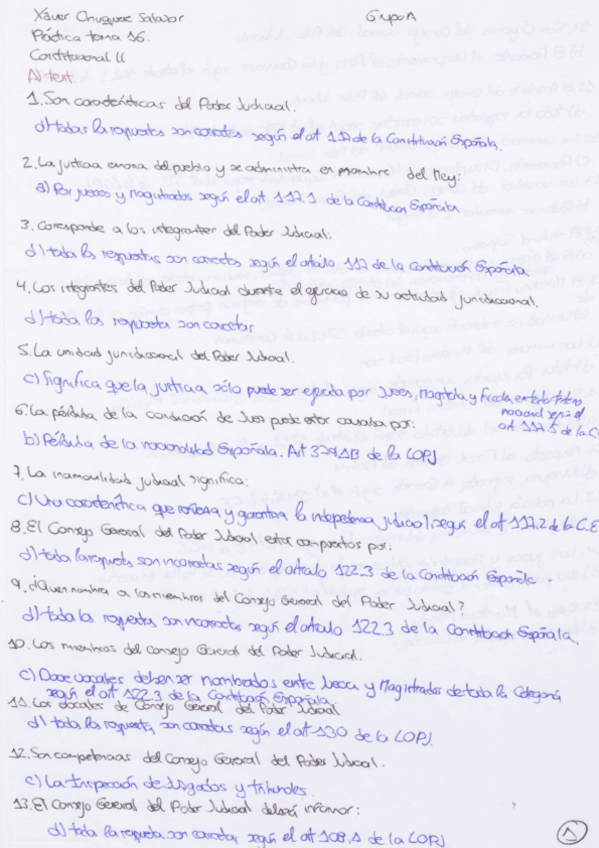 Xavier Chuguransc Salazar Grupo A
Práctica tema 16.
Constitucional II
A) text.
1. Son características del Poder Judicial.
d) todas las respuestas son correctas según el art 117 de la Constitución Española.
2. La justicia emana del pueblo y se administra en nombre del Rey:
a) Por jueces y magistrados según el art. 117.1 de la Constitución Española
3. Corresponde a los integrantes del Poder Judicial:
d) todas las respuestas son correctas según el artículo 117 de la Constitución Española.
4. Los integrantes del Poder Judicial durante el ejercicio de su actividad jurisdiccional.
d) todas las respuestas son correctas
5. La unidad jurisdiccional del Poder Judicial.
c) Significa que la justicia sólo puede ser ejercida por Jueces, Magistrados y Fiscales, en todo el territorio
nacional según el
art 117.5 de la C.E
6. La pérdida de la condición de Juez puede estar causada por:
b) Pérdida de la nacionalidad Española. Art 379.1B de la LOPJ
7. La inamovilidad judicial significa:
c) Una característica que refuerza y garantiza la independencia judicial según el art 117.2 de la C.E
8. El Consejo General del Poder Judicial estar compuestos por:
d) todas las respuestas son incorrectas según el artículo 122.3 de la Constitución Española.
9. ¿Quien nombra a los miembros del Consejo General del Poder Judicial?
d) todas las respuestas, son incorrectas según el artículo 122.3 de la Constitución Española.
10. Los miembros del consejo General del Poder Judicial.
c) Doce vocales deben ser nombrados entre Jueces y Magistrados de todas las Categorías
según el art 122.3 de la Constitución Española.
11. Los vocales de Consejo General del Poder Judicial
d) todas las respuestas, son correctas según el art 130 de la LOPJ.
12. Son competencias del Consejo General del Poder Judicial.
c) La Inspección de Juzgados y tribunales.
13. El Consejo General del Poder Judicial deberá informar:
d) todas las respuestas son correctas, según el art 108.1 de la LOPJ
1